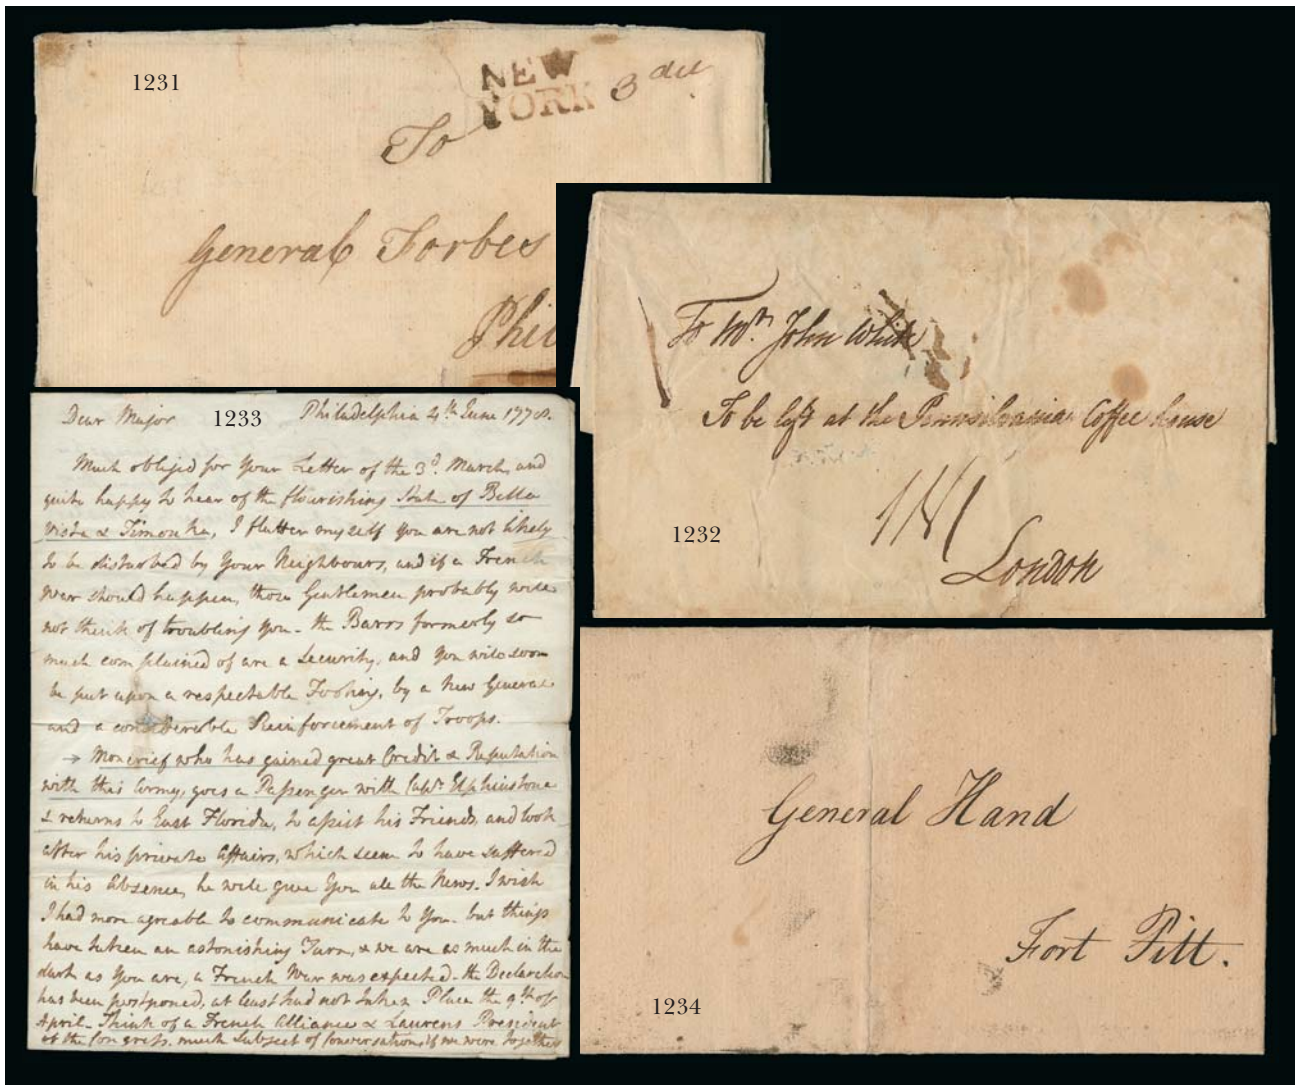 1231
NEW
YORK
3 dut
To
General Forbes
Phil
To Mr. John White
To be left at the Pennsilvania Coffee house
1232
London
Dear Major
1233
Philadelphia 4th June 1778.
Much obliged for Your Letter of the 3d. March, and
quite happy to hear of the flourishing State of Bella
Vista & Timouka, I flatter myself you are not likely
to be disturbed by Your Neighbours, and if a French
War should happen, those Gentlemen probably will
not think of troubling you - the Barrs formerly so
much complained of are a Security, and you will soon
be put upon a respectable Footing, by a New General
and a considerable Reinforcement of Troops.
→ Moncrief who has gained great Credit & Reputation
with this Army, goes a Passenger with Capt. Elphinstone
& returns to East Florida, to assist his Friends, and look
after his private Affairs, which seem to have suffered
in his Absence, he will give You all the News. I wish
I had more agreable to communicate to You - but things
have taken an astonishing Turn, & we are as much in the
dark as You are, a French War was expected - the Declaration
has been postponed, at least had not taken Place the 9th of
April - Think of a French Alliance & Laurens President
of the Congress. much Subject of Conversation if we were together
General Hand
Fort Pitt.
1234